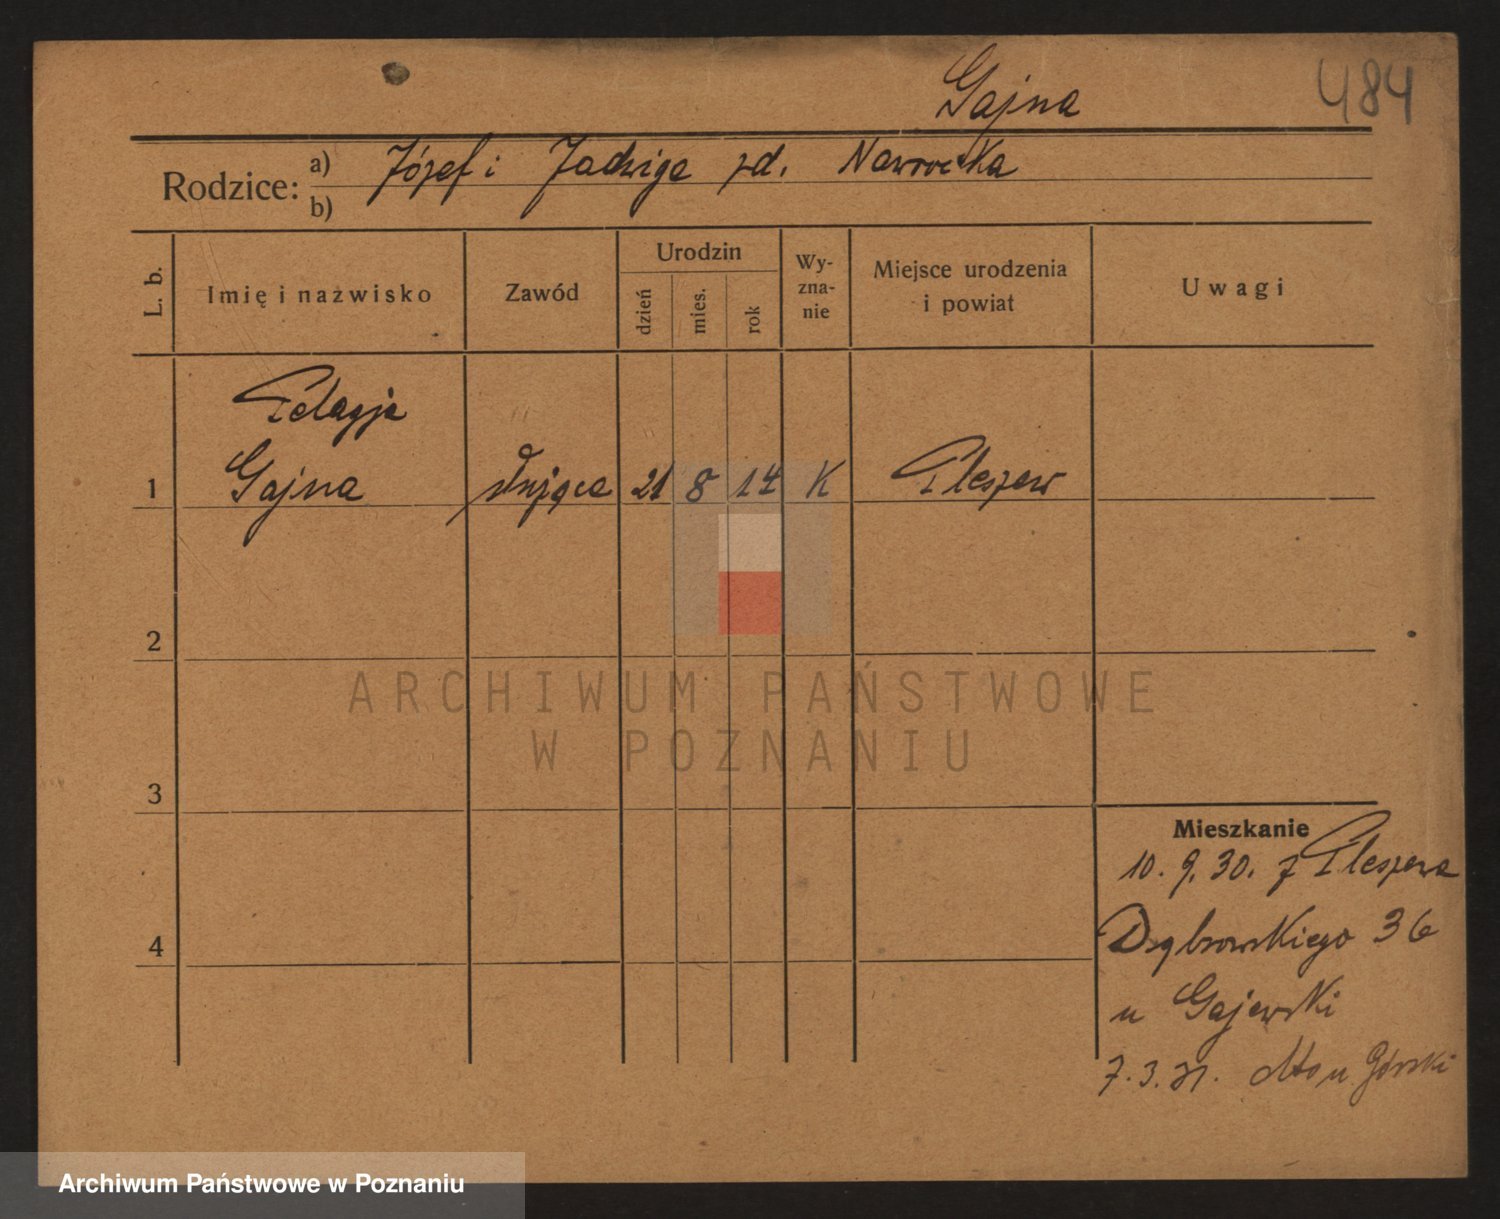 Gajna
484
Rodzice: a) Józef i Jadwiga zd. Nawrocka
b)
L. b.
Imię i nazwisko
Zawód
Urodzin
dzień
mies.
rok
Wy-
zna-
nie
Miejsce urodzenia
i powiat
Uwagi
Pelagja
1 Gajna służąca 21 8 14 K Pleszew
2
ARCHIWUM PAŃSTWOWE
W POZNANIU
3
Mieszkanie
10. 9. 30. z Pleszewa
4
Dąbrowskiego 36
u Gajewski
7. 3. 31. u Górski
Archiwum Państwowe w Poznaniu